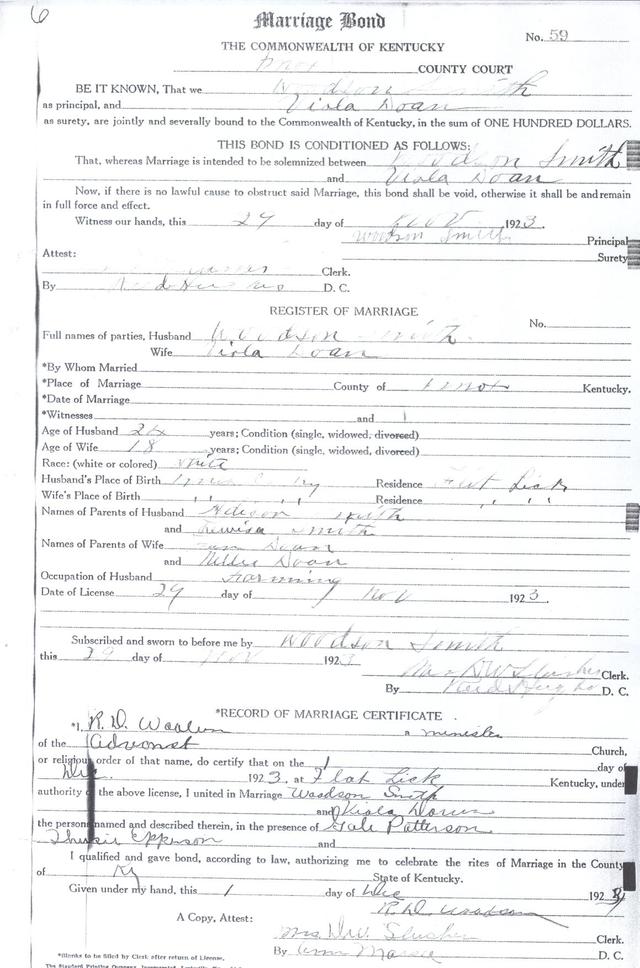 6
Marriage Bond
No. 59
THE COMMONWEALTH OF KENTUCKY
Knox COUNTY COURT
BE IT KNOWN, That we Woodson Smith
as principal, and Viola Doan
as surety, are jointly and severally bound to the Commonwealth of Kentucky, in the sum of ONE HUNDRED DOLLARS.
THIS BOND IS CONDITIONED AS FOLLOWS:
That, whereas Marriage is intended to be solemnized between Woodson Smith
and Viola Doan
Now, if there is no lawful cause to obstruct said Marriage, this bond shall be void, otherwise it shall be and remain
in full force and effect.
Witness our hands, this 29 day of Nov 1923.
Woodson Smith Principal
Surety
Attest:
Clerk.
By D. C.
REGISTER OF MARRIAGE
No.
Full names of parties, Husband Woodson Smith
Wife Viola Doan
*By Whom Married
*Place of Marriage County of Knox Kentucky.
*Date of Marriage
*Witnesses and
Age of Husband 24 years; Condition (single, widowed, divorced)
Age of Wife 18 years; Condition (single, widowed, divorced)
Race: (white or colored) White
Husband's Place of Birth Knox Co Ky Residence Flat Lick
Wife's Place of Birth " " Residence " "
Names of Parents of Husband Smith
and Smith
Names of Parents of Wife Doan
and Doan
Occupation of Husband Farming
Date of License 29 day of Nov 1923.
Subscribed and sworn to before me by Woodson Smith
this 29 day of Nov 1923
Mrs D W Slusher Clerk.
By D. C.
*RECORD OF MARRIAGE CERTIFICATE
*I, R. D. a minister
of the Church,
or religious order of that name, do certify that on the 1 day of
Dec. 1923, at Flat Lick Kentucky, under
authority of the above license, I united in Marriage Woodson Smith
and
the persons named and described therein, in the presence of Gale Patterson
Epperson and
I qualified and gave bond, according to law, authorizing me to celebrate the rites of Marriage in the County
of Ky State of Kentucky.
Given under my hand, this 1 day of Dec 1923
R. D.
A Copy, Attest:
Mrs. D. W. Slusher Clerk.
By D. C.
*Blanks to be filled by Clerk after return of License.
The Standard Printing Company, Incorporated, Louisville, Ky.